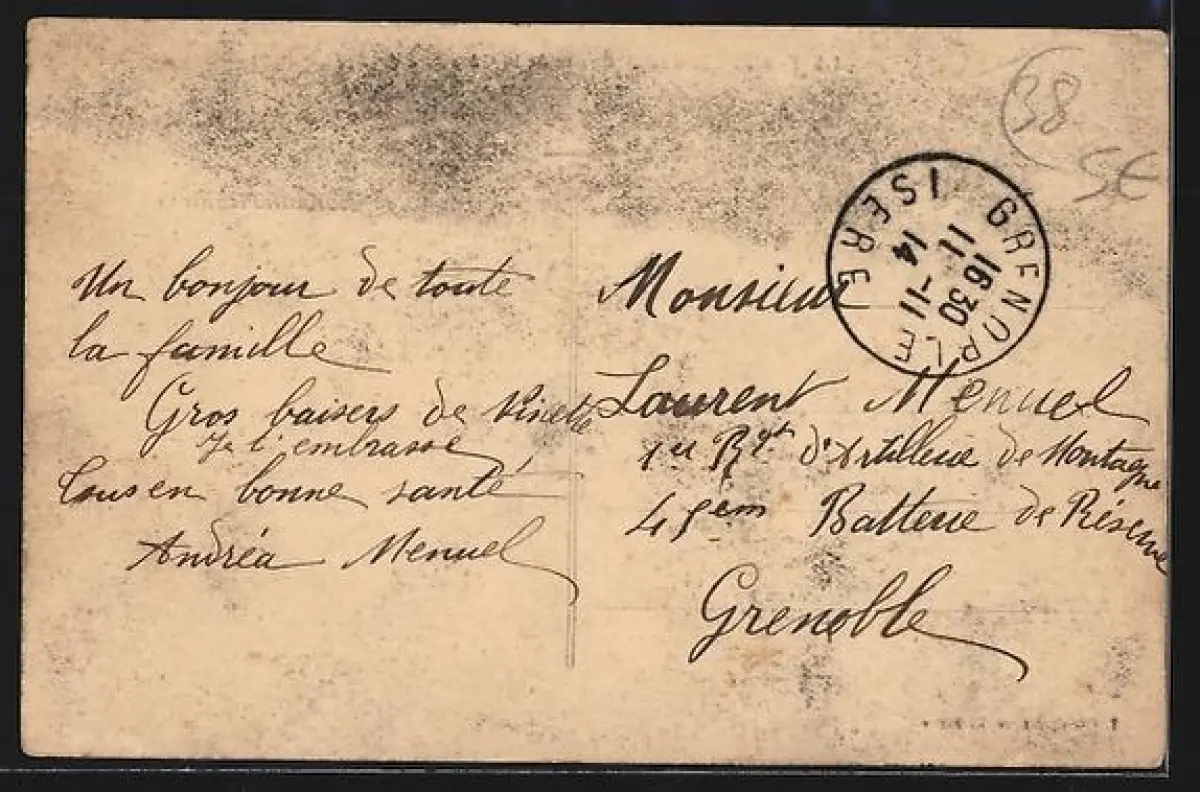 38
5€
GRENOBLE
ISERE
1630
11 -11
14
Un bonjour de toute
la famille
Gros baisers de
Je t'embrasse
Tous en bonne santé
Andréa Menuel
Monsieur
Laurent Menuel
1er Rgt d'Artillerie de Montagne
Batterie de Réserve
Grenoble